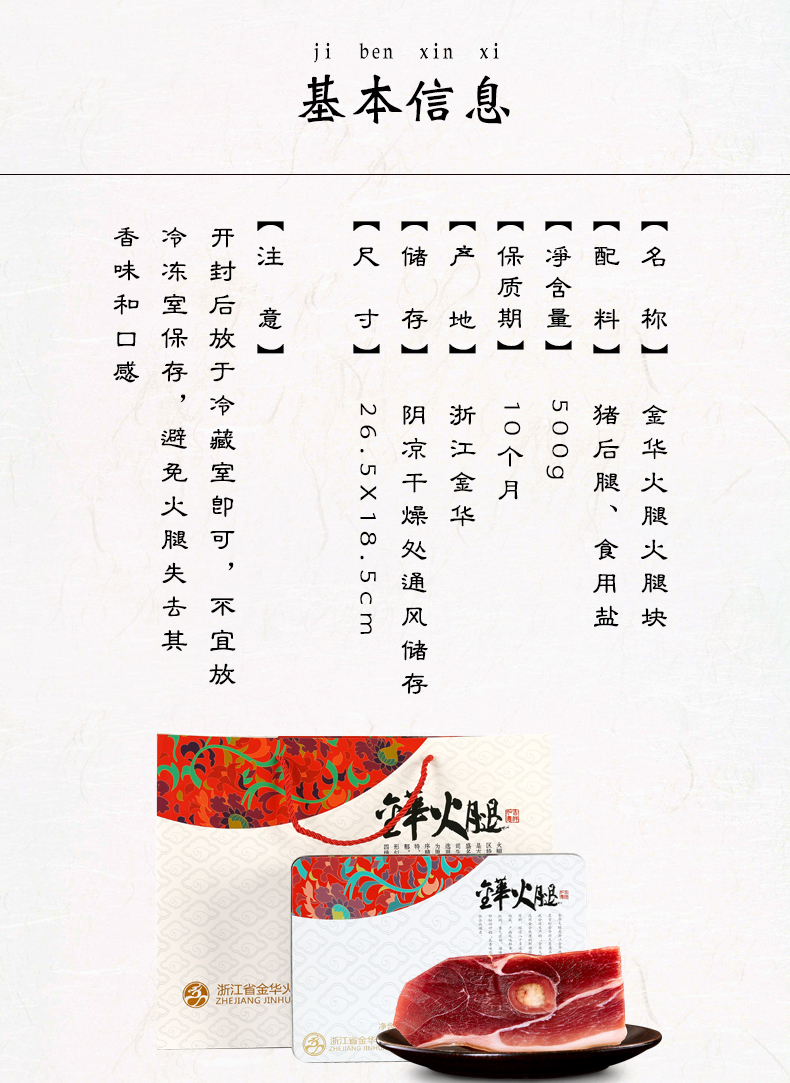 ji ben xin xi
基本信息
【名称】金华火腿火腿块
【配料】猪后腿、食用盐
【净含量】500g
【保质期】10个月
【产地】浙江金华
【储存】阴凉干燥处通风储存
【尺寸】26.5X18.5cm
【注意】
开封后放于冷藏室即可，不宜放
冷冻室保存，避免火腿失去其
香味和口感
金华火腿
浙江省金华火
ZHEJIANG JINHU
金华火腿
浙江省金华
ZHEJIANG JINHU